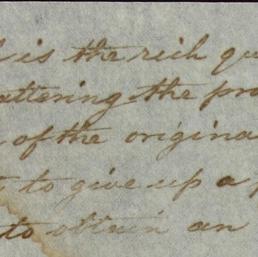 is the rich
the
of the origina
to give up a
to obtain an